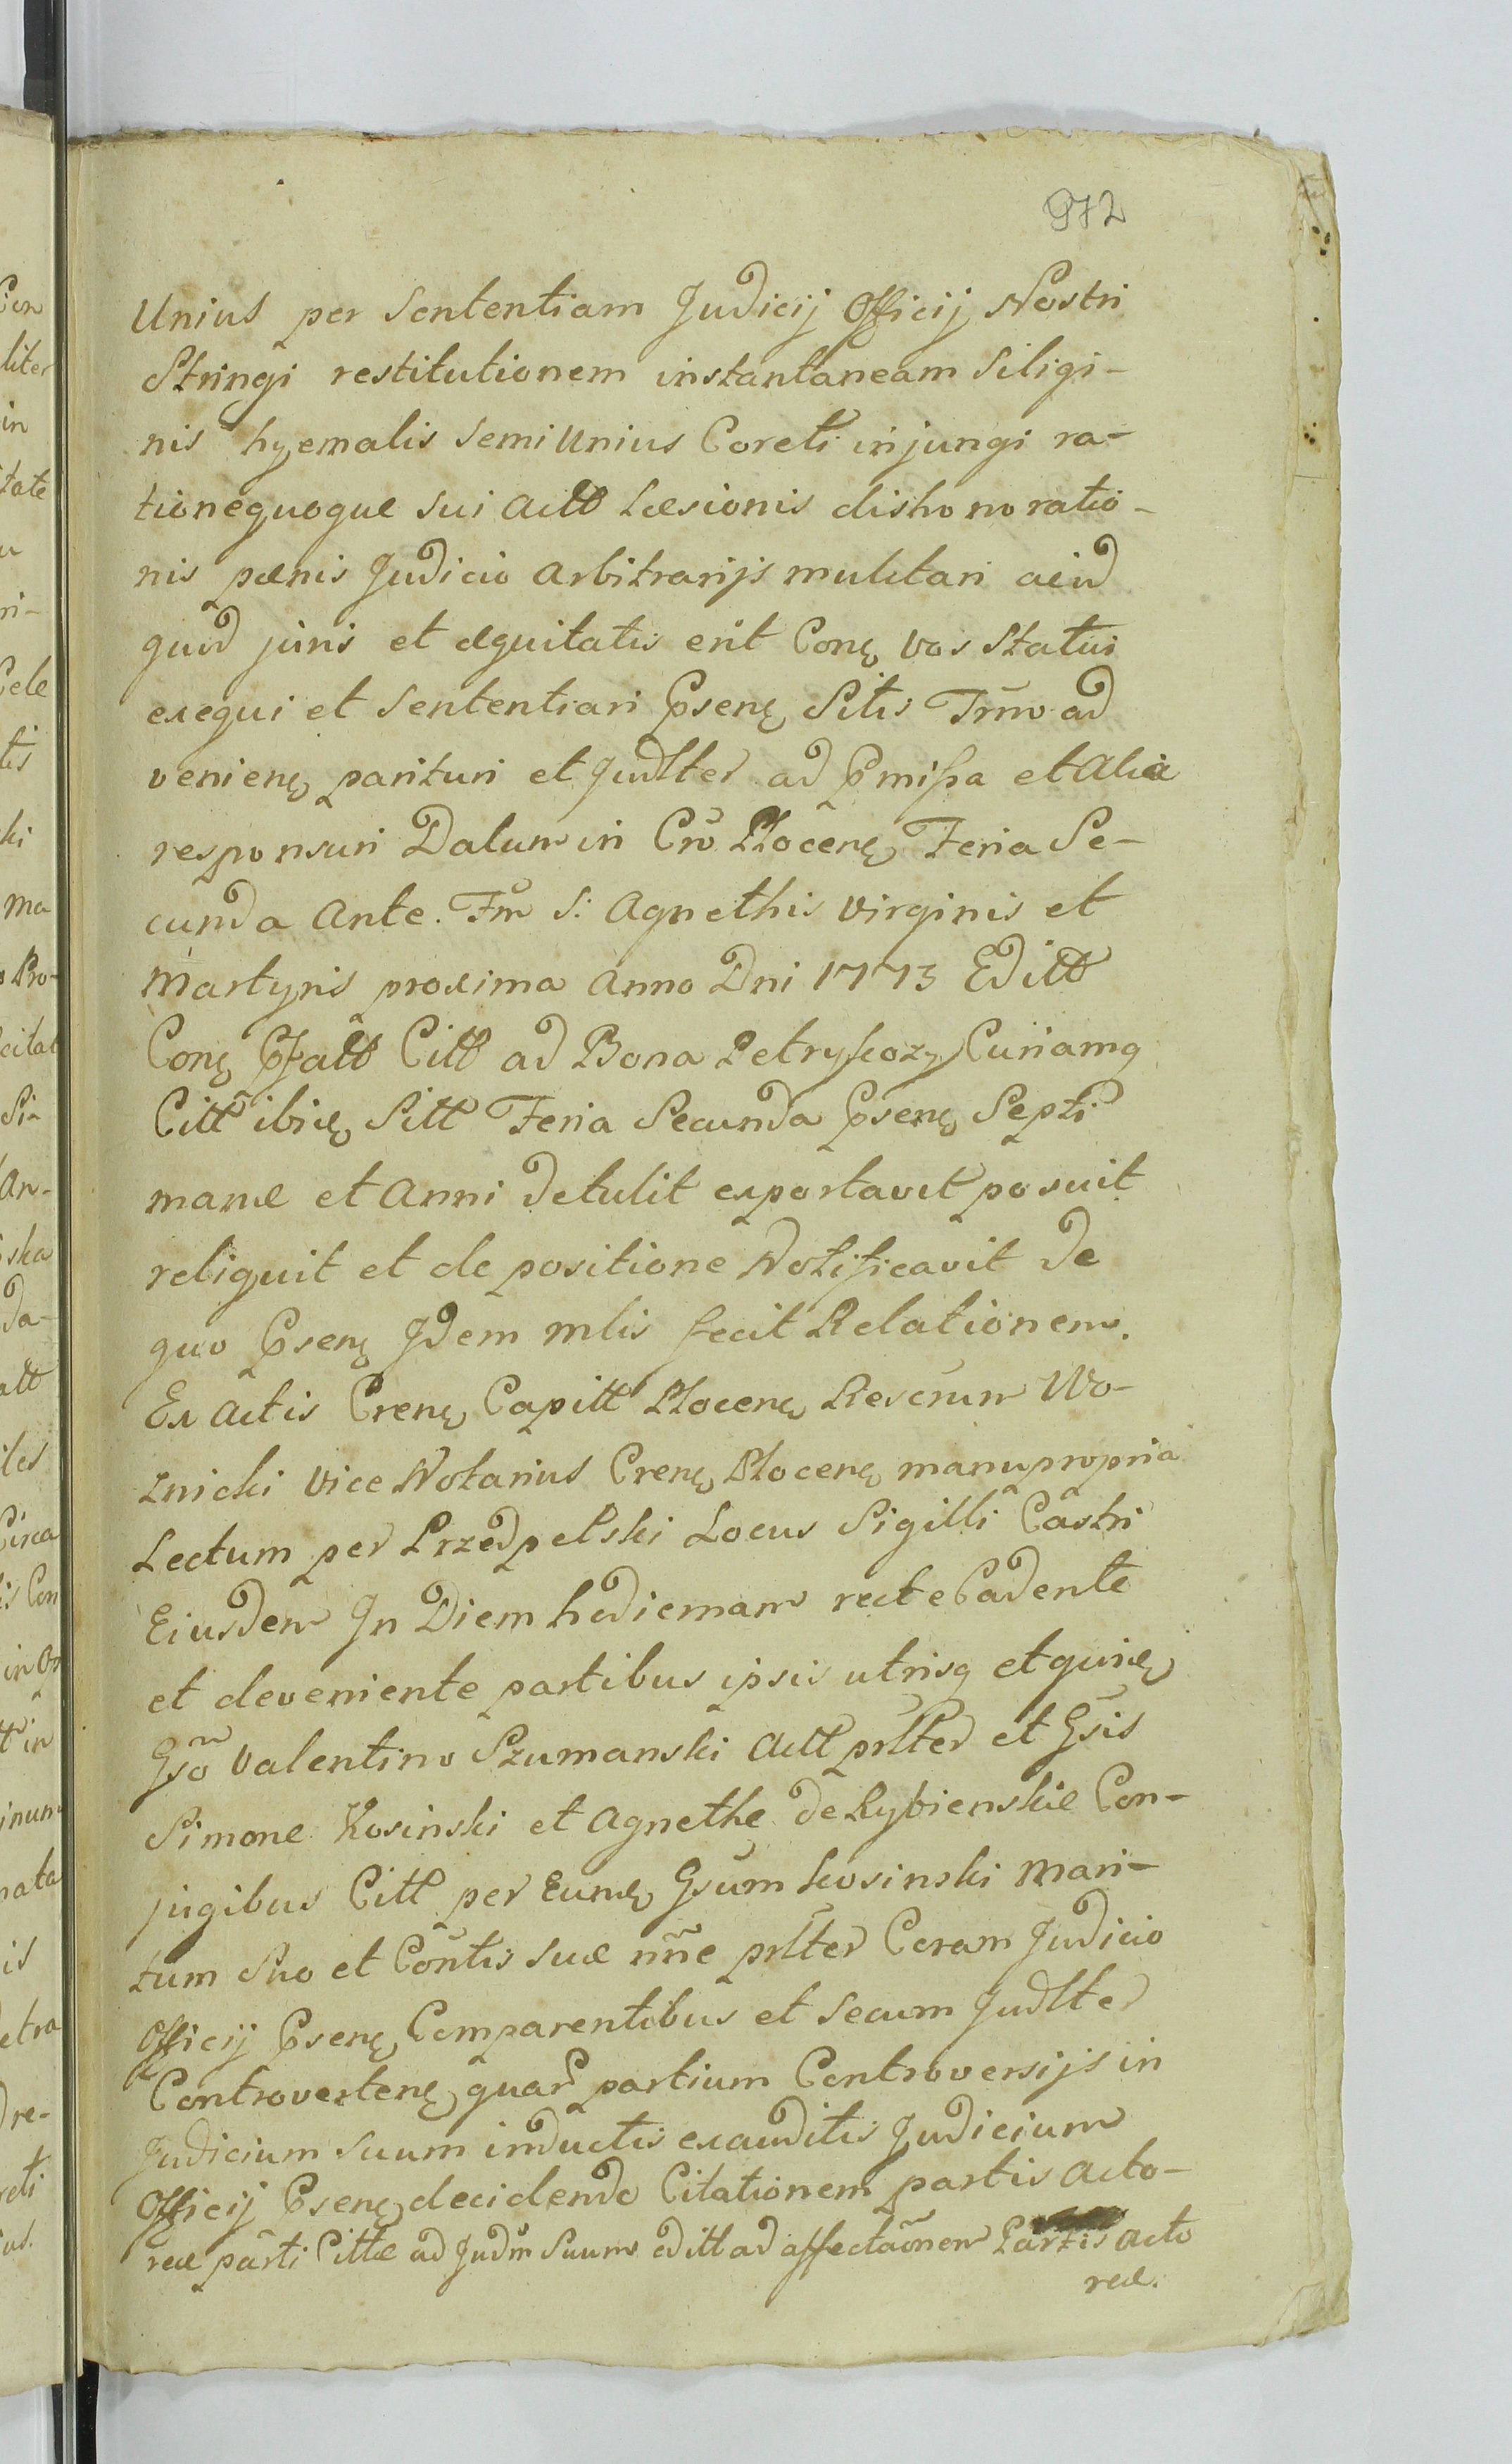 972
Unius per Sententiam Judicij Officij Nostri
Stringi restitutionem instantaneam Siligi-
nis hyemalis Semi Unius Coreti injungi ra-
tionequoque sui Actt Læsionis dishonoratio-
nis pænis Judicio Arbitrarijs mulctari aliud
quid juris et æquitatis erit Conę vos Statui
exequi et Sententiari Pseną Sitis Trno ad
venieną parituri et Judtter ad Pmissa et Alia
responsuri Datum in Cro Płoceną Feria Se-
cunda Ante Fm S: Agnethis Virginis et
Martyris proxima Anno Dni 1773 Editt
Conę Pfatt Citt ad Bona Petrykozy Curiamq
Citt ibidę Sitt Feria Secunda Pseną Septi
manæ et Anni detulit exportavit posuit
reliquit et de positione Notificavit de
quo Pseną Idem mlis fecit Relationem.
Ex Actis Creną Capitt Płoceną Rescrum Wo-
znicki Vice Notarius Creną Płoceną manupropria
Lectum per Przedpełski Locus Sigilli Castri
Eiusdem In Diem hodiernam recte Cadente
et deveniente partibus ipsis utrisq et quidę
Gso Valentino Szumanski Actt prltter et Gsis
Simone Kosinski et Agnethe de Rybienskie Con-
jugibus Citt per Eundę Gsum Kosinski Mari-
tum Suo et Contis suæ nne prltter Coram Judicio
Officij Pseną Comparentibus et Secum Judtter
Controverteną quar partium Controversijs in
Judicium suum inductis exauditis Judicium
Officij Pseną decidendo Citationem partis Acto-
reæ parti Cittæ ad Judm Suum editt ad affectaonem Partis Acto
reæ.